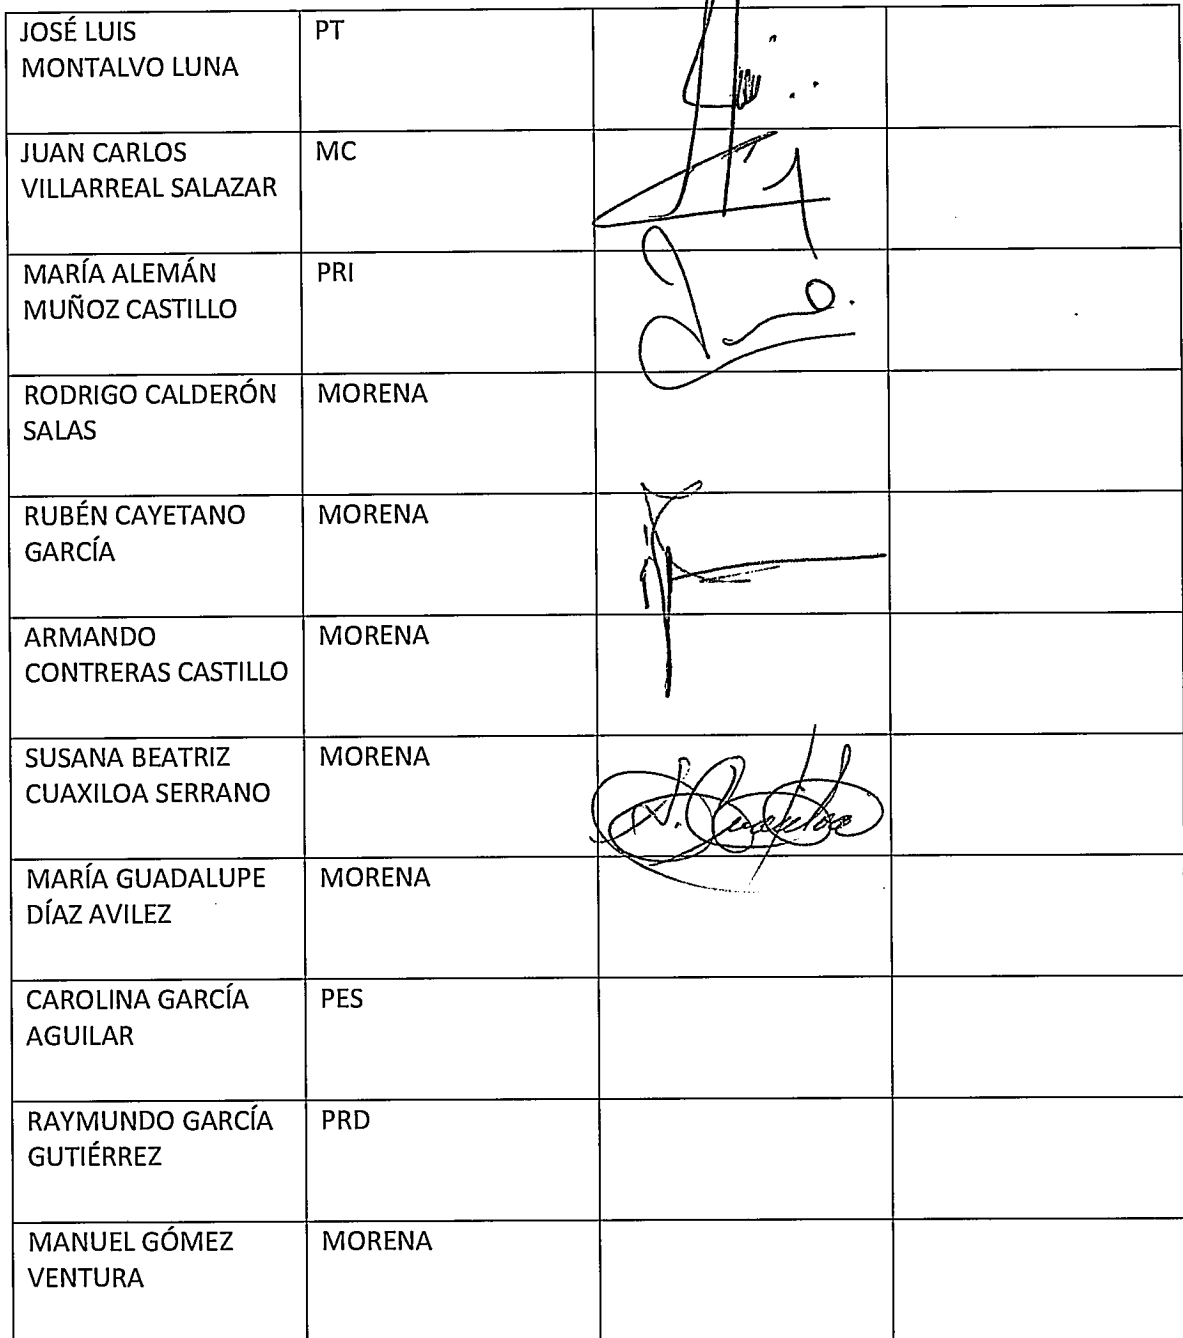 JOSÉ LUIS
MONTALVO LUNA
PT
JUAN CARLOS
VILLARREAL SALAZAR
MC
MARÍA ALEMÁN
MUÑOZ CASTILLO
PRI
RODRIGO CALDERÓN
SALAS
MORENA
RUBÉN CAYETANO
GARCÍA
MORENA
ARMANDO
CONTRERAS CASTILLO
MORENA
SUSANA BEATRIZ
CUAXILOA SERRANO
MORENA
MARÍA GUADALUPE
DÍAZ AVILEZ
MORENA
CAROLINA GARCÍA
AGUILAR
PES
RAYMUNDO GARCÍA
GUTIÉRREZ
PRD
MANUEL GÓMEZ
VENTURA
MORENA